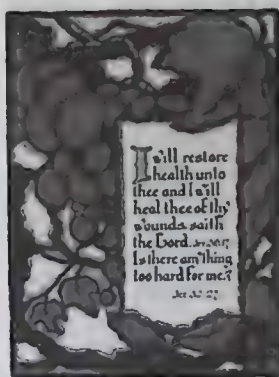 I will restore
health unto
thee and I will
heal thee of thy
wounds saith
the Lord. Jer. 30:17
Is there anything
too hard for me?
Jer. 32:27